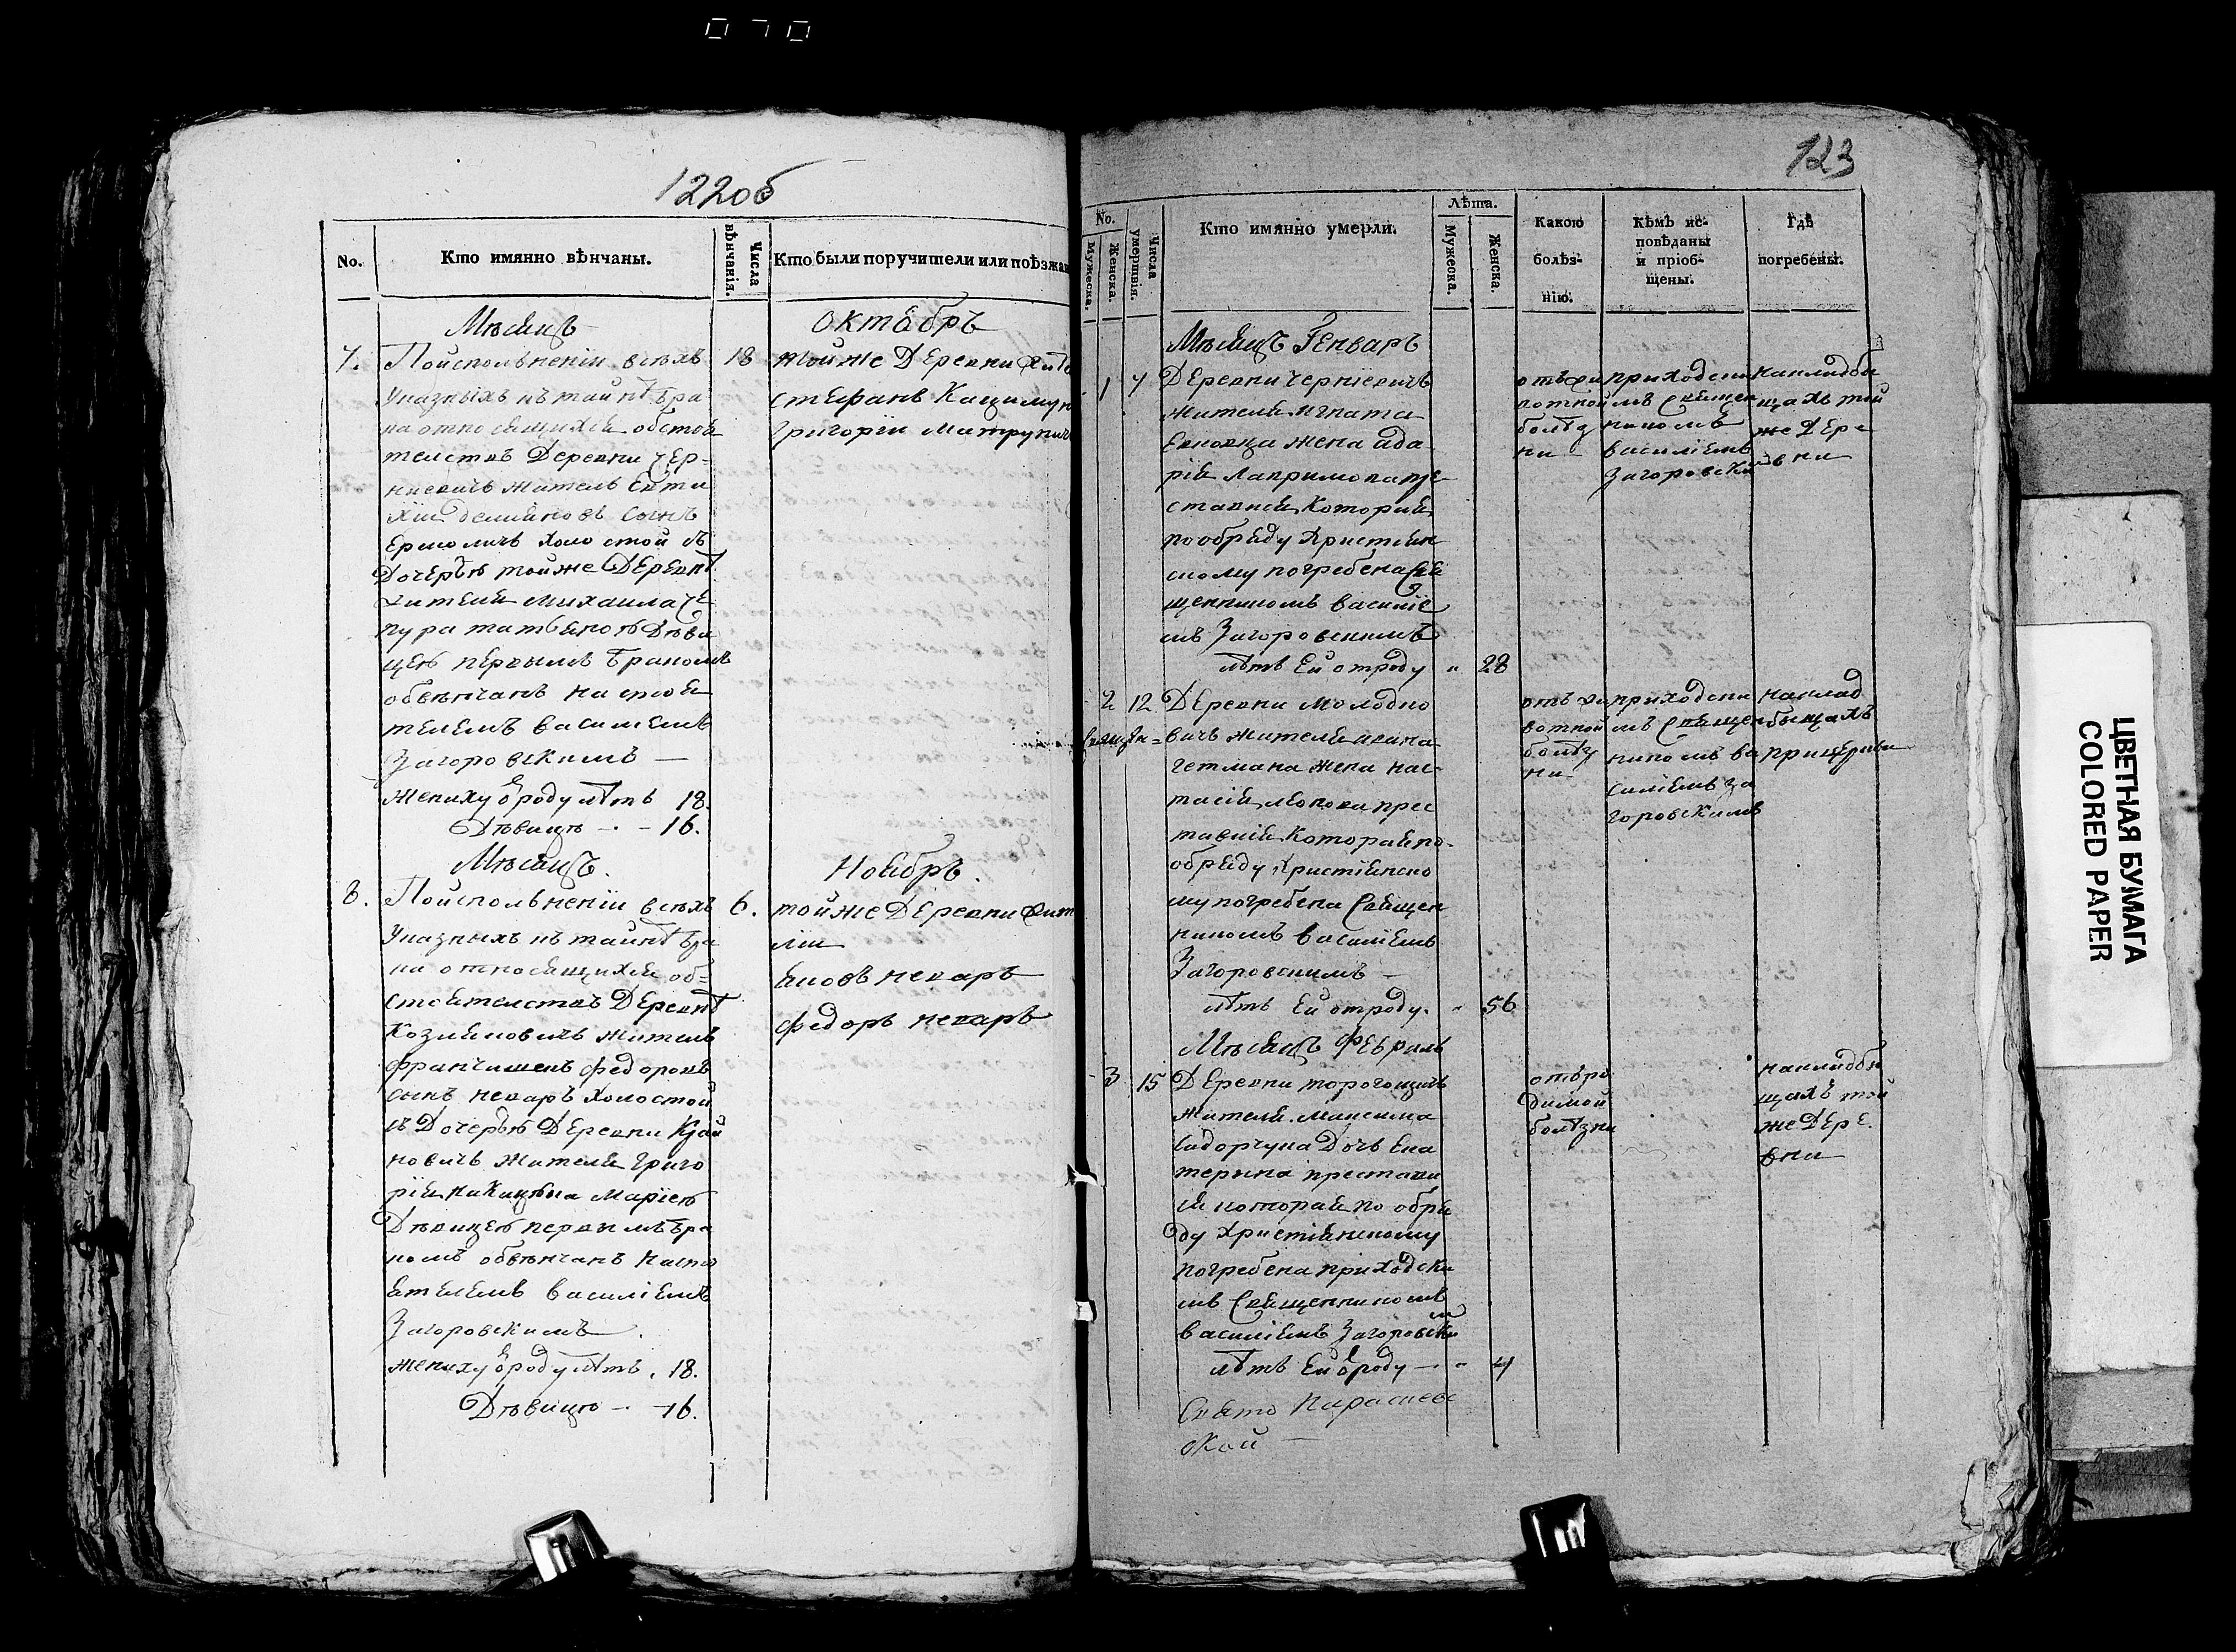 070
122об
No.
Кто имянно вѣнчаны.
Числа вѣнчанія.
Кто были поручители или поѣзжан
Мѣсяцъ
Октябръ
7.
18
Поисполненіи всѣхъ
Указныхъ къ таинѣ бра
ка относящихся обстоя
телствъ Деревни Чер-
ниевичъ житель Евти
хій сынъ
Ермоличъ холостой съ
Дочерью тойже Деревнѣ
жителя Михаила Че
пура Татьяною Дѣви
цею первымъ бракомъ
обвѣнчанъ настоя
телемъ василіемъ
Загоровскимъ —
Жениху отроду лѣтъ 18.
Дѣвице — 16.
тойже Деревни жите
Стефанъ
Григорій
Мѣсяцъ.
Ноябръ.
8.
6.
Поисполненіи всѣхъ
Указныхъ къ таинѣ бра
ка относящихся об=
стоятелствъ Деревнѣ
Козляковичъ житель
францишекъ федоровъ
сынъ некаръ холостой
съ Дочерью Деревни Край
новичъ жителя Григо
рія Мариею
Дѣвицею первымъ бра
комъ обвѣнчанъ насто
ятелемъ василіемъ
Загоровскимъ.
жениху отроду лѣтъ. 18.
Дѣвице — 16.
тойже Деревни жит
ели
яковъ некаръ
федоръ некаръ
123
No.
Мужеска.
Женска.
Числа умершвія.
Кто имянно умерли.
Лѣта.
Мужеска.
Женска.
Какою
болѣз-
нію.
Кѣмъ ис-
повѣданы
и пріоб-
щены.
Гдѣ
погребены.
Мѣсяцъ Генваръ
1
7
Деревни Черніевичъ
жителя Игната
жена
преставися
Которая
по обряду Христіян
скому погребена Свя
щенникомъ василіе
мъ Загоровскимъ
лѣтъ Ей отроду „ 28
приходски
мъ Священ
никомъ
василіемъ
Загоровски
накладби
щахъ той
же Дере
вни
2
12
Деревни Молодко
вичъ жителя ивана
гетмана жена нас-
тасія прес
тавися Которая по
обряду Христіянско
му погребена Священ
никомъ василіемъ
Загоровскимъ —
лѣтъ Ей отроду. „ 56
приходски
мъ Священ
никомъ ва
силіемъ За
горовскимъ
наклад
бищахъ
прицеркви
Мѣсяцъ Февраль
3
15
Деревни торогощичъ
жителя Максима
Сидорчука Дочь Ека
терина престави
ся которая по обря
ду Христіянскому
погребена приходски
мъ Священникомъ
василіемъ Загоровски
мъ
лѣтъ Ей отроду — „ 4
отъ ро
димой
болѣзни
накладби
щахъ той
же Дере.
вни
Свято Параскев
ской —
ЦВЕТНАЯ БУМАГА
COLORED PAPER